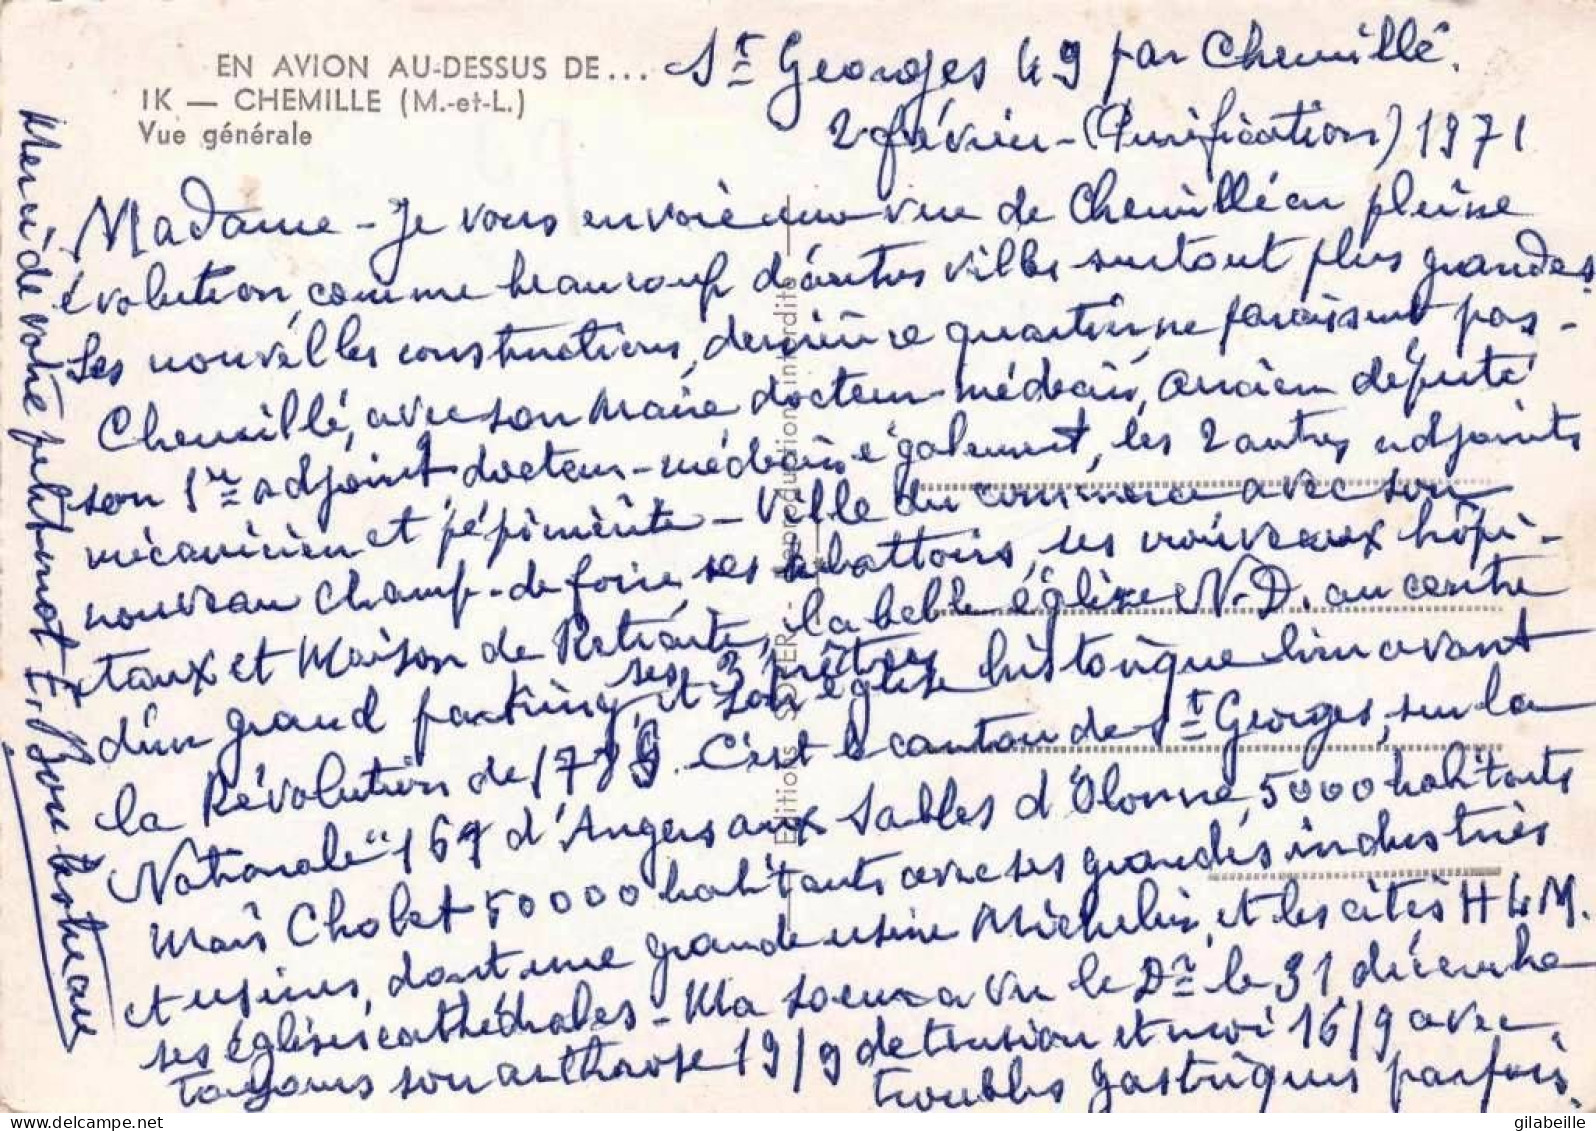 EN AVION AU-DESSUS DE...
1K — CHEMILLE (M.-et-L.)
Vue générale
St Georges 49 par Chemillé.
2 février - (Purification) 1971
Madame - Je vous envoie une vue de Chemillé en pleine
évolution, comme beaucoup d'autres villes surtout plus grandes.
Les nouvelles constructions, dernière quarantaine paraissent pas -
Chemillé, avec son Maire, docteur-médecin, ancien député
son 1er adjoint docteur-médecin également, les 2 autres adjoints
mécanicien et pépiniériste - Ville du commerce avec son
nouveau Champ-de-foire, ses abattoirs, ses nouveaux hôpi-
taux et Maison de Retraite, la belle église N.-D. au centre
d'un grand parking, ses 3 prêtres et son église historique bien avant
la Révolution de 1789. C'est le canton de St Georges, sur la
Nationale 161 d'Angers aux Sables d'Olonne, 5000 habitants
Mais Cholet 50000 habitants avec ses grandes industries
et usines, dont une grande usine Michelin, et les cités HLM.
ses églises cathédrales - Ma soeur a vu le Dr le 31 décembre
toujours son arthrose 19/9 de tension et moi 16/9 avec
troubles gastriques parfois.
Merci de votre petit mot E. Bou
Editions SOFER - Reproduction interdite
gilabeille